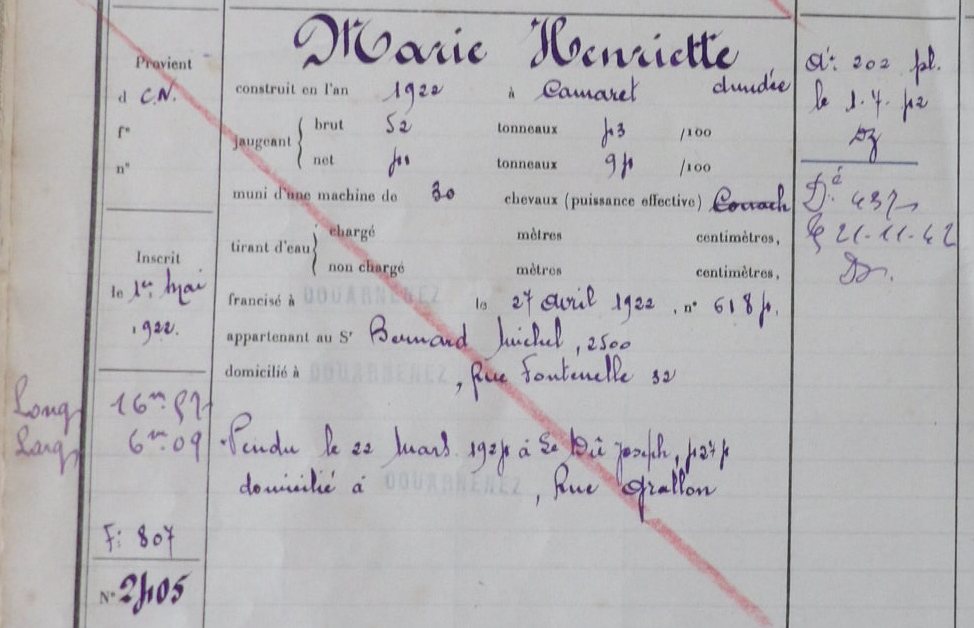 Marie Henriette
Provient
d C.N.
f°
n°
construit en l'an 1922 à Camaret dundée
jaugeant
brut 52 tonneaux 53 /100
net tonneaux 95 /100
muni d'une machine de 30 chevaux (puissance effective)
tirant d'eau
chargé mètres centimètres,
non chargé mètres centimètres,
Inscrit
le 1er Mai
1922.
francisé à DOUARNENEZ le 27 avril 1922, n° 6185.
appartenant au Sr Bernard Michel, 2500
domicilié à DOUARNENEZ, Rue Fontenelle 32
Long 16m
Larg 6m 09
Vendu le 22 Mars 1925 à Le Joseph, 5275
domicilié à DOUARNENEZ, Rue Grallon
F: 807
N° 2505
202 pl.
le 1.7.52
21-11-42